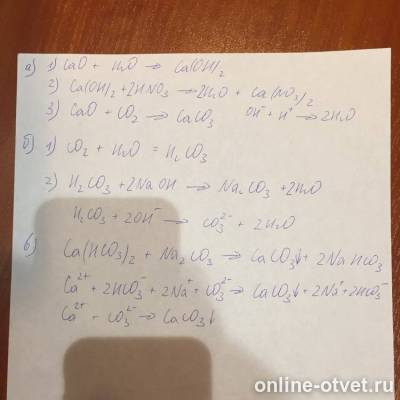 а) 1) CaO + H₂O → Ca(OH)₂
2) Ca(OH)₂ + 2HNO₃ → 2H₂O + Ca(NO₃)₂
3) CaO + CO₂ → CaCO₃ OH⁻ + H⁺ → 2H₂O
б) 1) CO₂ + H₂O = H₂CO₃
2) H₂CO₃ + 2NaOH → Na₂CO₃ + 2H₂O
H₂CO₃ + 2OH⁻ → CO₃²⁻ + 2H₂O
в)
Ca(HCO₃)₂ + Na₂CO₃ → CaCO₃↓ + 2NaHCO₃
Ca²⁺ + 2HCO₃⁻ + 2Na⁺ + CO₃²⁻ → CaCO₃↓ + 2Na⁺ + 2HCO₃⁻
Ca²⁺ + CO₃²⁻ → CaCO₃↓
online-otvet.ru